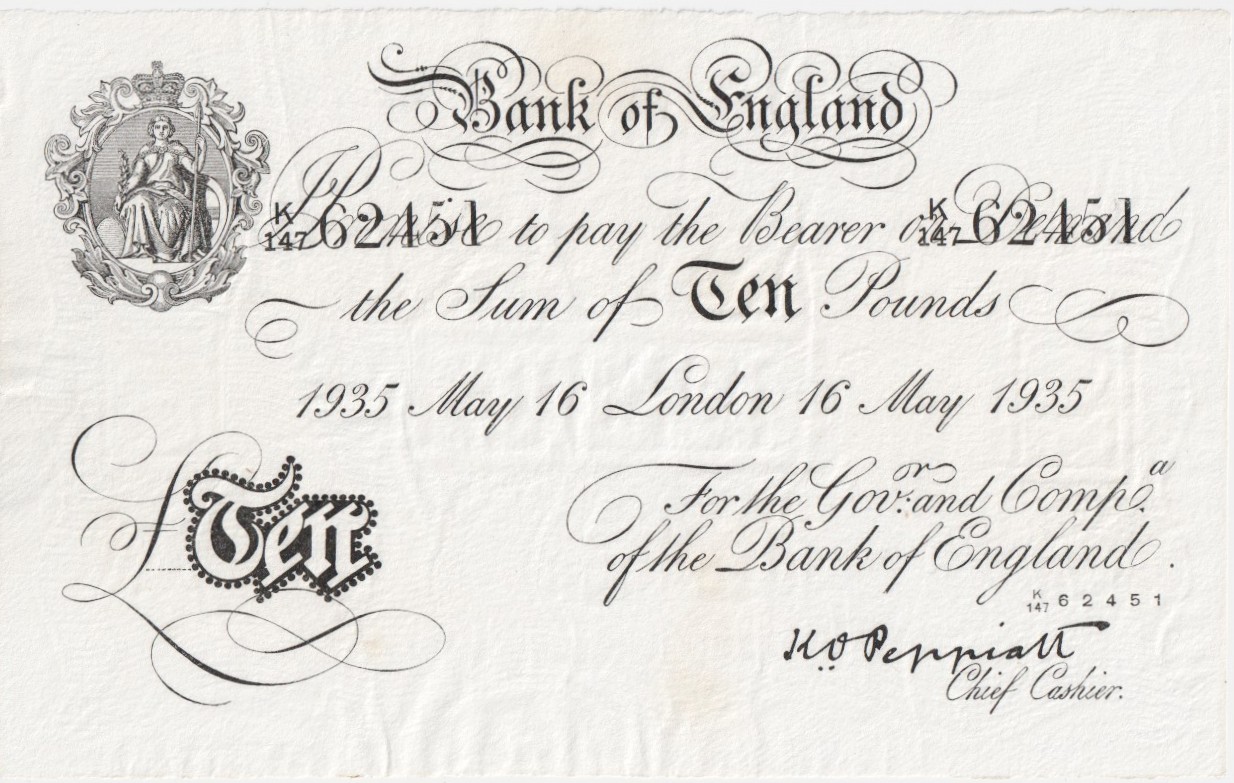 Bank of England
K/147 62451 K/147 62451
I Promise to pay the Bearer on Demand
the Sum of Ten Pounds
1935 May 16 London 16 May 1935
For the Govr. and Compa.
of the Bank of England.
£Ten
K/147 62451
K O Peppiatt
Chief Cashier.